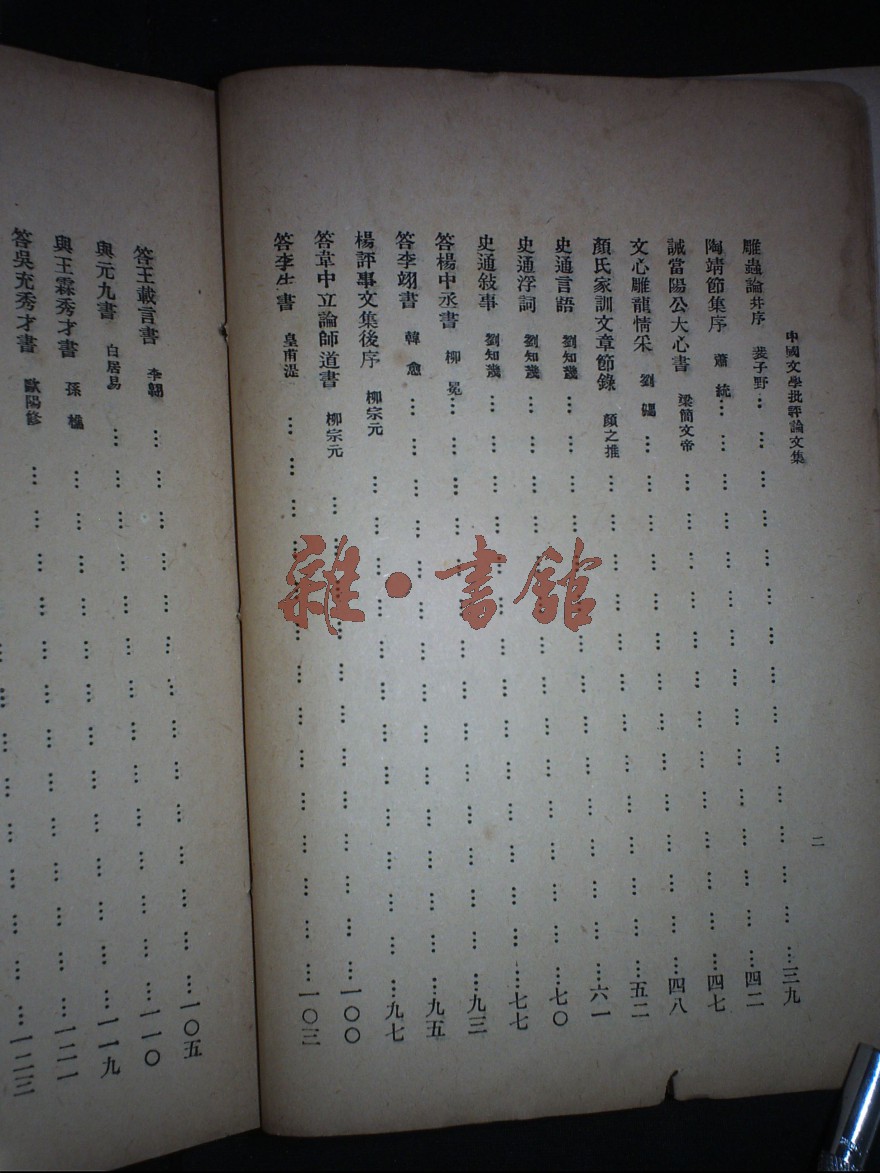 中國文學批評論文集
二
雕蟲論并序 裴子野 … … … … … … … … … … 三九
陶靖節集序 蕭統 … … … … … … … … … … 四二
誡當陽公大心書 梁簡文帝 … … … … … … … … … 四七
文心雕龍情采 劉勰 … … … … … … … … … … 四八
顏氏家訓文章節錄 顏之推 … … … … … … … … … 五二
史通言語 劉知幾 … … … … … … … … … … 六一
史通浮詞 劉知幾 … … … … … … … … … … 七〇
史通敍事 劉知幾 … … … … … … … … … … 七七
答楊中丞書 柳冕 … … … … … … … … … … 九三
答李翊書 韓愈 … … … … … … … … … … 九五
楊評事文集後序 柳宗元 … … … … … … … … … 九七
答韋中立論師道書 柳宗元 … … … … … … … … 一〇〇
答李生書 皇甫湜 … … … … … … … … … … 一〇三
答王載言書 李翺 … … … … … … … … … … 一〇五
與元九書 白居易 … … … … … … … … … … 一一〇
與王霖秀才書 孫樵 … … … … … … … … … … 一一九
答吳充秀才書 歐陽修 … … … … … … … … … 一二一
一二三
雜·書館